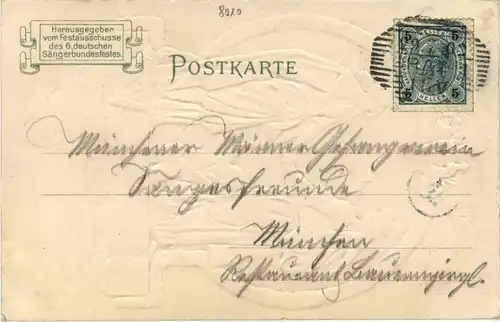 8919
Herausgegeben
vom Festausschusse
des 6. deutschen
Sängerbundesfestes.
POSTKARTE
5 5
HELLER
5 5
Münchener Männer Gesangverein
Sangesfreunde
München
Restaurant Bauerngirgl.